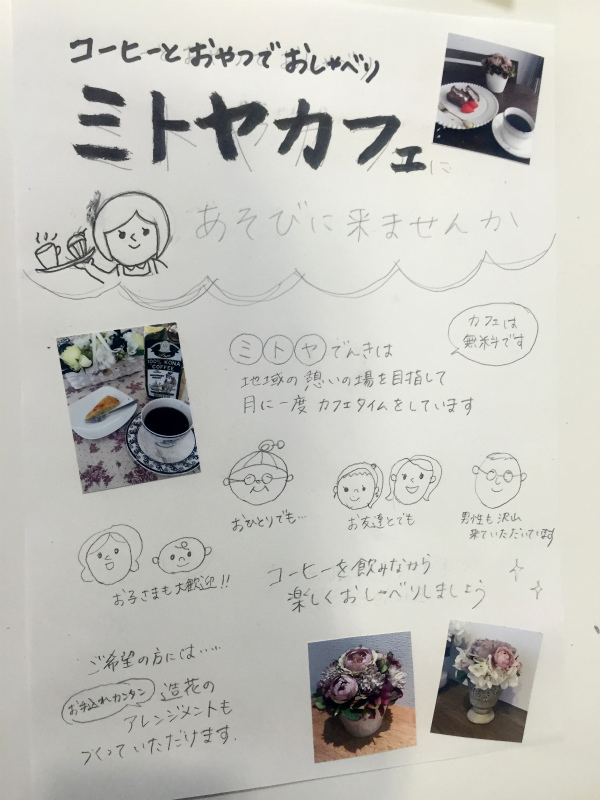 コーヒーとおやつでおしゃべり
ミトヤカフェに
あそびに来ませんか
カフェは
無料です
ミトヤでんきは
地域の憩いの場を目指して
月に一度カフェタイムをしています
100% KONA
COFFEE
おひとりでも…
お友達とでも
男性も沢山
来ていただいています
お子さまも大歓迎!!
コーヒーを飲みながら
楽しくおしゃべりしましょう
ご希望の方には……
お手入れカンタン 造花の
アレンジメントも
つくっていただけます.